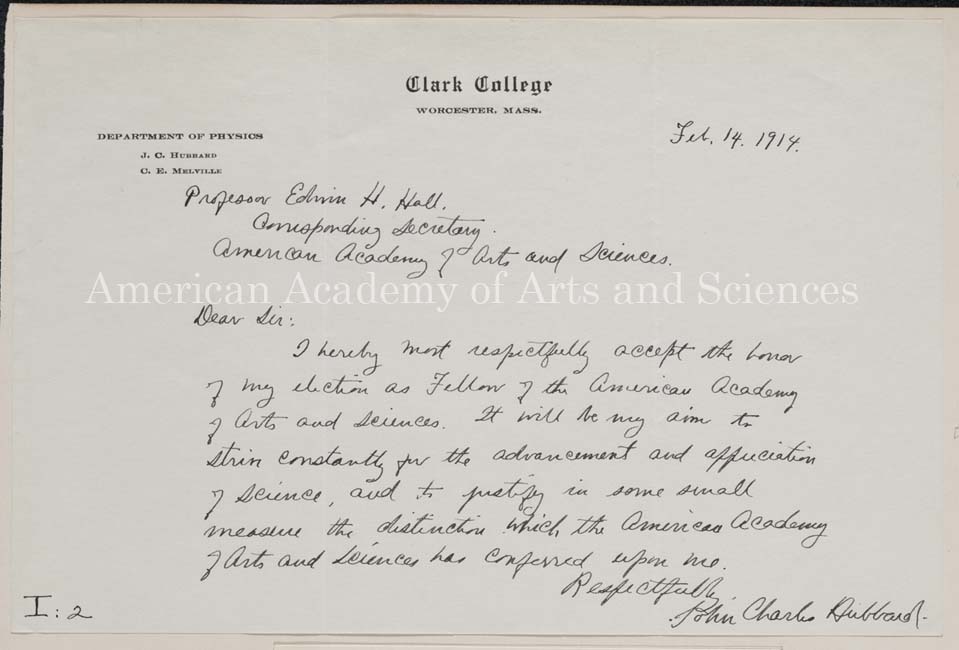 Clark College
WORCESTER, MASS.
DEPARTMENT OF PHYSICS
J. C. HUBBARD
C. E. MELVILLE
Feb. 14. 1914.
Professor Edwin H. Hall.
Corresponding Secretary.
American Academy of Arts and Sciences.
American Academy of Arts and Sciences
Dear Sir:
I hereby most respectfully accept the honor
of my election as Fellow of the American Academy
of Arts and Sciences. It will be my aim to
strive constantly for the advancement and appreciation
of science, and to justify in some small
measure the distinction which the American Academy
of Arts and Sciences has conferred upon me.
Respectfully
John Charles Hubbard.
I:2